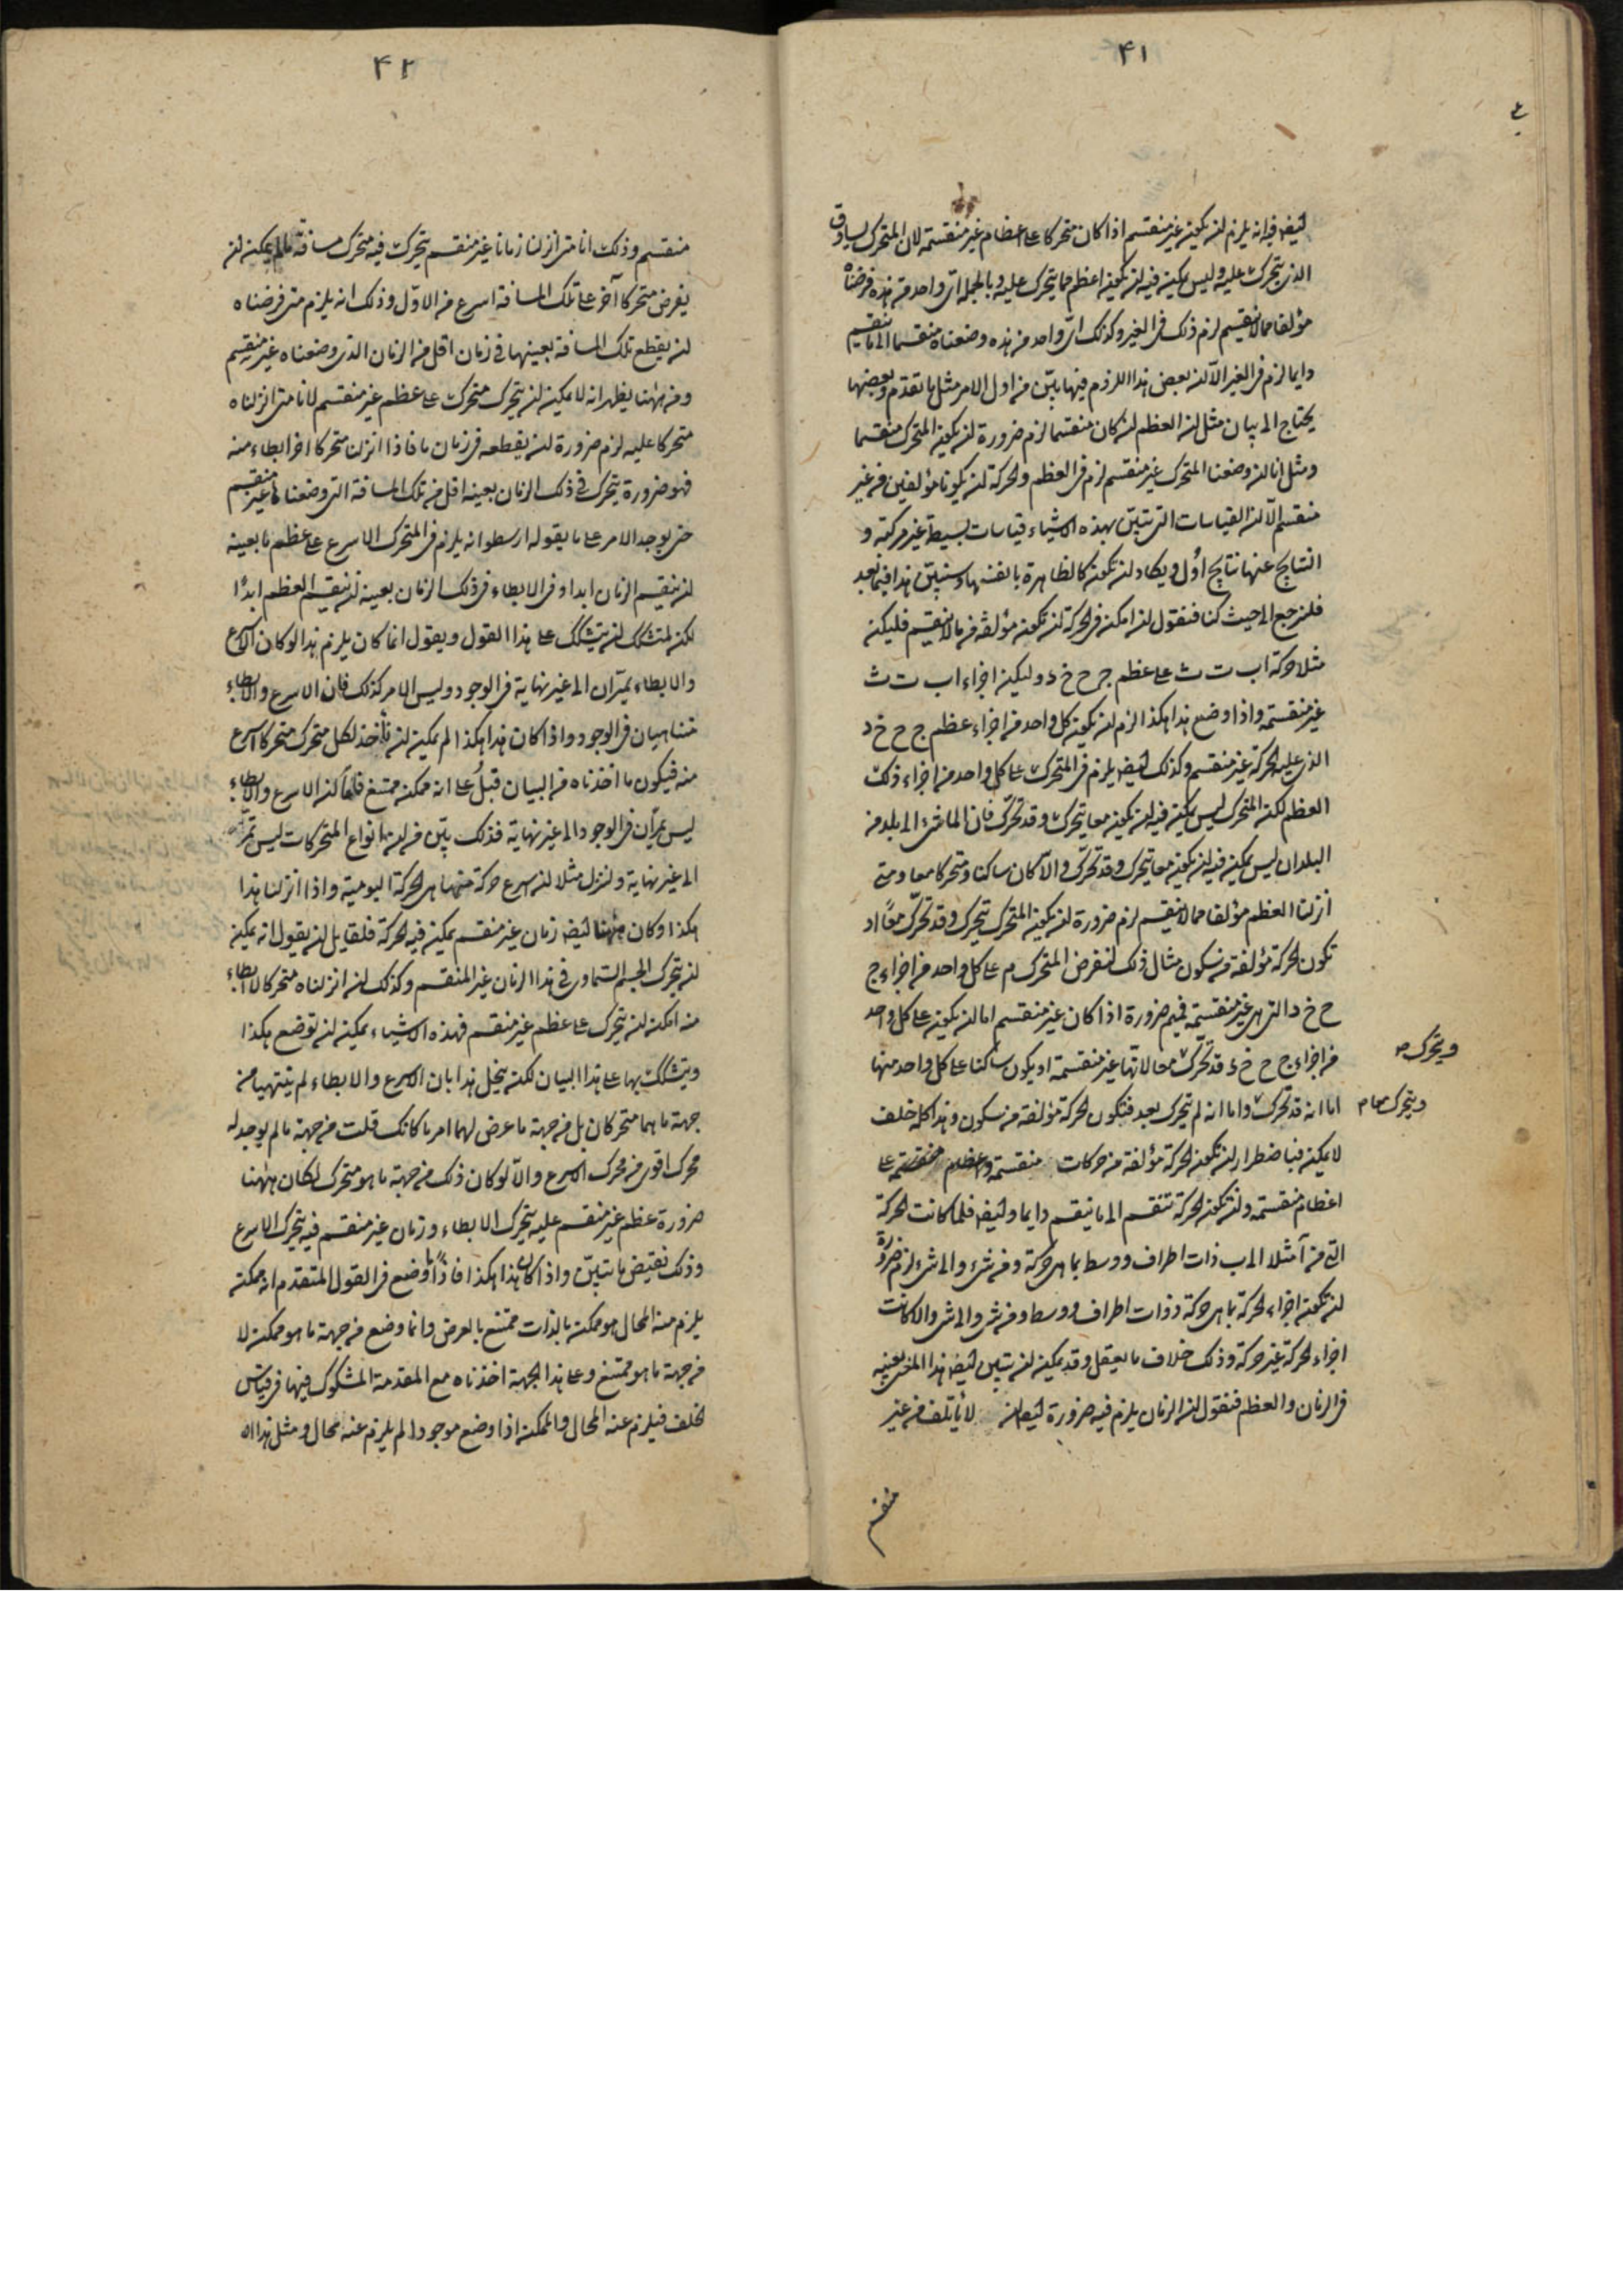 ۴۱
ايضا فيه انه يلزم ان يكون غير منقسم اذا كان متحركا على اعظام غير منقسمة لان المتحرك يساوق
الذي يتحرك عليه وليس يمكن فيه ان يكون اعظم مما يتحرك عليه وبالجملة اي واحد من هذه فرضناه
مؤلفا مما لا ينقسم لزم ذلك في الغير وكذلك اي واحد من هذه وضعناه منقسما الى ما ينقسم
دايما لزم في الغير الا ان بعض هذا اللزوم فيها بين من اول الامر مثل ما تقدم وبعضها
يحتاج الى بيان مثل ان العظم ان كان منقسما لزم ضرورة ان يكون المتحرك منقسما
ومثل انا ان وضعنا المتحرك غير منقسم لزم في العظم والحركة ان يكونا مؤلفين من غير
منقسم الا ان القياسات التي تبين بهذه الاشياء قياسات بسيطة غير مركبة و
النتايج عنها نتايج اول ويكاد ان تكون كالظاهرة بانفسها وسنبين هذا فيما بعد
فلنرجع الى حيث كنا فنقول ان امكن في الحركة ان تكون مؤلفة من ما لا ينقسم فليكن
مثلا حركة اب ت ث على عظم ج ح خ د وليكن اجزاء اب ت ث
غير منقسمة واذا وضع هذا هكذا لزم ان يكون كل واحد من اجزاء عظم ج ح خ د
الذي عليه الحركة غير منقسم وكذلك ايضا يلزم في المتحرك على كل واحد من اجزاء ذلك
العظم لكن المتحرك ليس يمكن فيه ان يكون معا يتحرك وقد تحرك فان الماشي الى بلد من
البلدان ليس يمكن فيه ان يكون معا يتحرك وقد تحرك والا كان ساكنا ومتحركا معا ومتى
انزلنا العظم مؤلفا مما لا ينقسم لزم ضرورة ان يكون المتحرك يتحرك وقد تحرك معا او
تكون الحركة مؤلفة من سكون مثال ذلك لنفرض المتحرك م على كل واحد من اجزاء ج
ح خ د التي هي غير منقسمة فيم ضرورة اذا كان غير منقسم اما ان يكون على كل واحد
من اجزاء ج ح خ د قد تحرك معا لانها غير منقسمة او يكون ساكنا على كل واحد منها
ويتحرك
اما انه قد تحرك واما انه لم يتحرك بعد فتكون الحركة مؤلفة من سكون وهذا كله خلف
ويتحرك معا م
لا يمكن فباضطرار ان تكون الحركة مؤلفة من حركات منقسمة واعظام منقسمة على
اعظام منقسمة وان تكون الحركة تنقسم الى ما ينقسم دايما وايضا فلما كانت الحركة
التي من آ مثلا الى ب ذات اطراف ووسط بما هي حركة ومن شيء والى شيء لزم ضرورة
ان تكون اجزاء الحركة بما هي حركة وذات اطراف ووسط ومن شي والى شي والا كانت
اجزاء الحركة غير حركة وذلك خلاف ما يعقل وقد يمكن ان يتبين ايضا هذا المعنى بعينه
في الزمان والعظم فنقول ان الزمان يلزم فيه ضرورة ايضا ان لا يأتلف من غير
منقسم
۴۲
منقسم وذلك انا متى انزلنا زمانا غير منقسم يتحرك فيه متحرك مسافة ما لم يمكن ان
يفرض متحركا آخر على تلك المسافة اسرع من الاول وذلك انه يلزم متى فرضناه
ان يقطع تلك المسافة بعينها في زمان اقل من الزمان الذي وضعناه غير منقسم
ومن ههنا يظهر انه لا يمكن ان يتحرك متحرك على عظم غير منقسم لانا متى انزلناه
متحركا عليه لزم ضرورة ان يقطعه في زمان ما فاذا انزلنا متحركا اخر ابطاء منه
فهو ضرورة يتحرك في ذلك الزمان بعينه اقل من تلك المسافة التي وضعناها غير منقسم
حتى يوجد الامر على ما يقوله ارسطو انه يلزم في المتحرك الاسرع على عظم ما بعينه
ان ينقسم الزمان ابدا وفي الابطاء في ذلك الزمان بعينه ان ينقسم العظم ابدًا
لكن لمتشكك ان يتشكك على هذا القول ويقول انما كان يلزم هذا لو كان الاسرع
والابطاء يمران الى غير نهاية في الوجود وليس الامر كذلك فان الاسرع والابطاء
متناهيان في الوجود واذا كان هذا هكذا لم يمكن ان نأخذ لكل متحرك متحركا اسرع
منه فيكون ما اخذناه في البيان قبلُ على انه ممكن ممتنع فاما ان الاسرع والابطاء
ليس يمرّان في الوجود الى غير نهاية فذلك بين من ان انواع المتحركات ليس تمر
الى غير نهاية ولنزل مثلا ان اسرع حركة منها هي الحركة اليومية واذا انزلنا هذا
هكذا وكان ههنا ايضا زمان غير منقسم يمكن فيه الحركة فلقايل ان يقول انه يمكن
ان يتحرك الجسم السماوي في هذا الزمان غير المنقسم وكذلك ان انزلناه متحركا لا ابطاء
منه امكن ان يتحرك على عظم غير منقسم فهذه الاشياء يمكن ان توضع هكذا
ويتشكك بها على هذا البيان لكن ينحل هذا بان الاسرع والابطاء لم يتناهيا من
جهة ما هما متحركان بل من جهة ما عرض لهما امر ما كانك قلت من جهة ما لم يوجد له
محرك اقوى من محرك الاسرع والا لو كان ذلك من جهة ما هو متحرك لكان ههنا
ضرورة عظم غير منقسم عليه يتحرك الابطاء وزمان غير منقسم فيه يتحرك الاسرع
وذلك نقيض ما تبين واذا كان هذا هكذا فاذًا ما وضع في القول المتقدم انه ممكن
يلزم منه المحال هو ممكن بالذات ممتنع بالعرض وانما وضع من جهة ما هو ممكن لا
من جهة ما هو ممتنع وعلى هذا الجهة اخذناه مع المقدمة المشكوك فيها في قياس
الخلف فيلزم عنه المحال والممكن اذا وضع موجودا لم يلزم عنه محال ومثل هذا